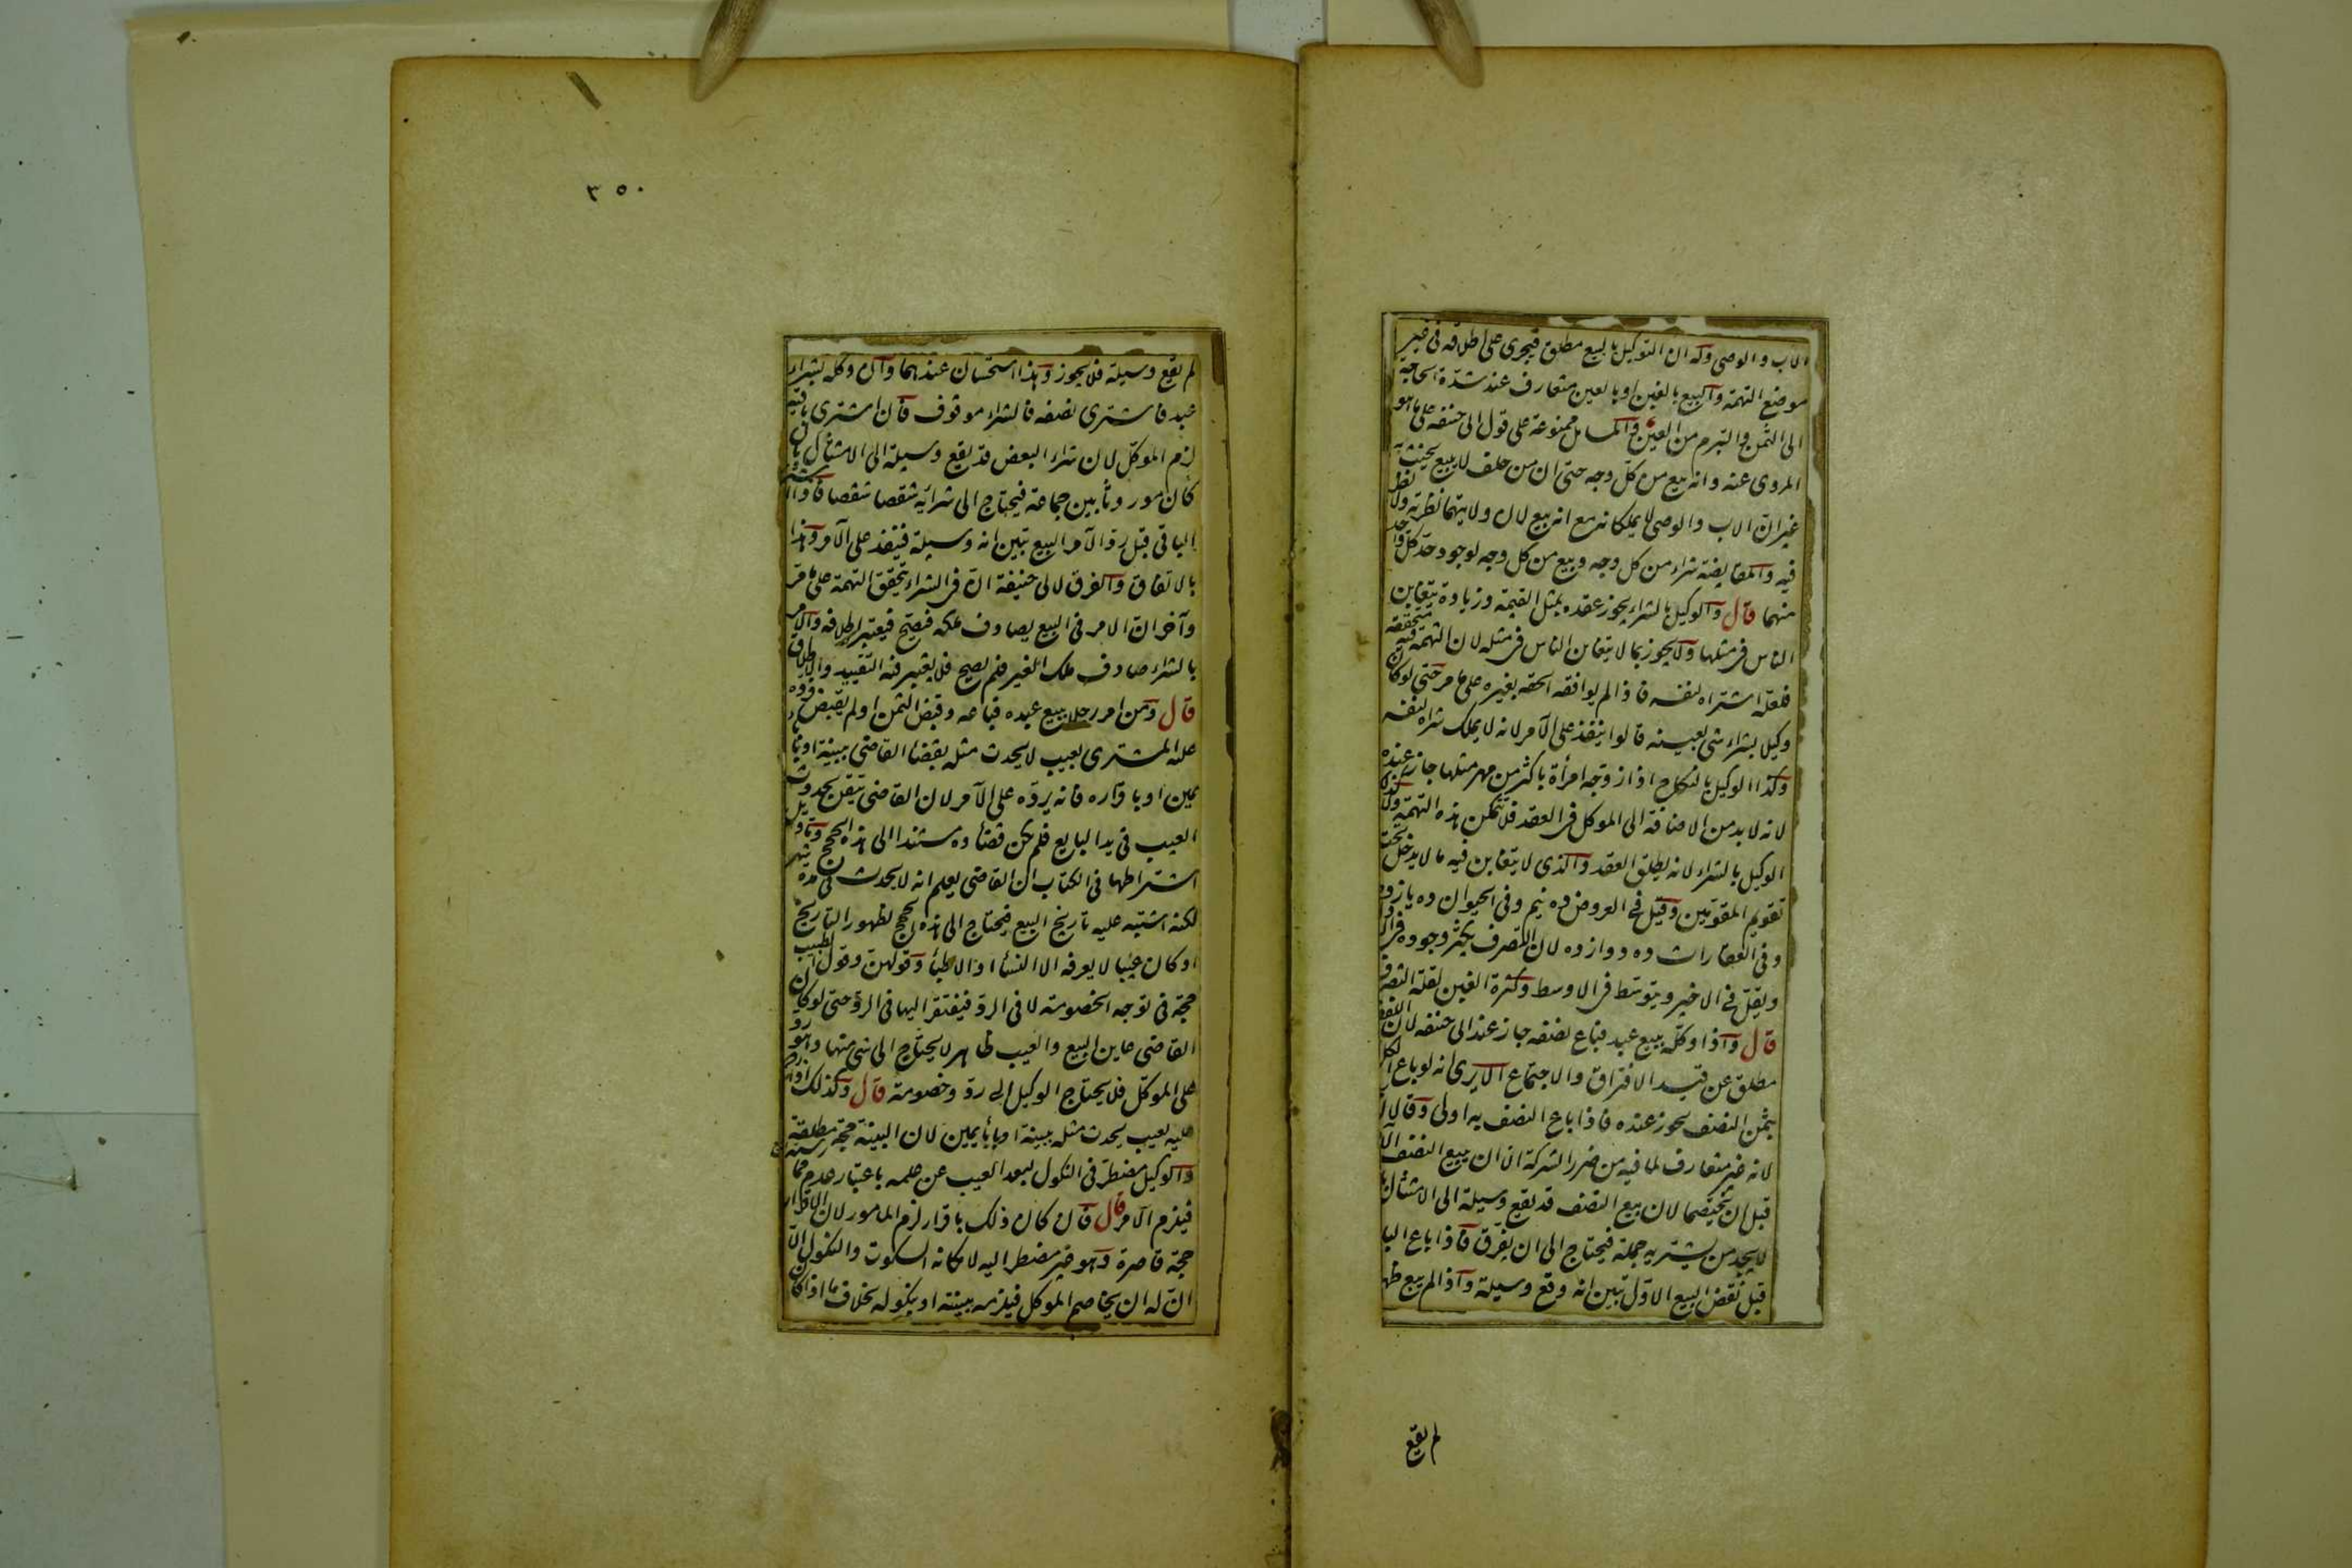 الاب والوصى وله ان التوكيل بالبيع مطلق فيجرى على اطلاقه فى غير
موضع التهمة والبيع بالغبن او بالعين متعارف عند شدة الحاجة
الى الثمن والتبرم من العين والمسائل ممنوعة على قول ابى حنيفة على ما هو
المروى عنه وانه بيع من كل وجه حتى ان من حلف لا يبيع يحنث به
غير ان الاب والوصى لا يملكانه مع انه بيع لان ولايتهما نظرية ولا نظر
فيه والمقايضة شراء من كل وجه وبيع من كل وجه لوجود حد كل واحد
منهما قال والوكيل بالشراء يجوز عقده بمثل القيمة وزيادة يتغابن
الناس فى مثلها ولا يجوز بما لا يتغابن الناس فى مثله لان التهمة فيه متحققة
فلعله اشتراه لنفسه فاذا لم يوافقه الحقه بغيره على ما مر حتى لو كان
وكيلا بشراء شئ بعينه قالوا ينفذ على الآمر لانه لا يملك شراه لنفسه
وكذا الوكيل بالنكاح اذا زوجه امرأة باكثر من مهر مثلها جاز عنده
لانه لا بد من الاضافة الى الموكل فى العقد فلا تتمكن هذه التهمة ولا كذلك
الوكيل بالشراء لانه يطلق العقد والذى لا يتغابن فيه ما لا يدخل تحت
تقويم المقومين وقيل فى العروض ده نيم وفى الحيوان ده يازده
وفى العقارات ده دوازده لان التصرف يكثر وجوده فى الاول
ويقل فى الاخير ويتوسط فى الاوسط وكثرة الغبن لقلة التصرف
قال واذا وكله ببيع عبد فباع نصفه جاز عند ابى حنيفة لان اللفظ
مطلق عن قيد الافتراق والاجتماع الا يرى انه لو باع الكل
بثمن النصف يجوز عنده فاذا باع النصف به اولى وقالا لا
لانه غير متعارف لما فيه من ضرر الشركة الا ان يبيع النصف الا
قبل ان يختصما لان بيع النصف قد يقع وسيلة الى الامتثال بان
لا يجد من يشتريه جملة فيحتاج الى ان يفرق فاذا باع البا
قبل نقض البيع الاول تبين انه وقع وسيلة واذا لم يبع ظهر
لم يقع
٣٥٠
لم يقع وسيلة فلا يجوز وهذا استحسان عندهما وان وكله بشراء
عبد فاشترى نصفه فالشراء موقوف فان اشترى باقيه
لزم الموكل لان شراء البعض قد يقع وسيلة الى الامتثال بان
كان موروثا بين جماعة فيحتاج الى شرائه شقصا شقصا فاذا اشترى
الباقى قبل رد الآمر البيع تبين انه وسيلة فينفذ على الآمر وهذا
بالاتفاق والفرق لابى حنيفة ان فى الشراء يتحقق التهمة على ما مر
وآخر ان الامر فى البيع يصادف ملكه فيصح فيعتبر اطلاقه والامر
بالشراء صادف ملك الغير فلم يصح فلا يعتبر فيه التقييد والاطلاق
قال ومن امر رجلا ببيع عبده فباعه وقبض الثمن او لم يقبض فرده
عليه المشترى بعيب لا يحدث مثله بقضاء القاضى ببينة او باباء
يمين او باقراره فانه يرده على الآمر لان القاضى تيقن بحدوث
العيب فى يد البايع فلم يكن قضاؤه مستندا الى هذه الحجج وتأويل
اشتراطها فى الكتاب ان القاضى يعلم انه لا يحدث فى مدة شهر
لكنه اشتبه عليه تاريخ البيع فيحتاج الى هذه الحجج لظهور التاريخ
او كان عيبا لا يعرفه الا النساء او الاطباء وقولهن وقول الطبيب
حجة فى توجه الخصومة لا فى الرد فيفتقر اليها فى الرد حتى لو كان
القاضى عاين البيع والعيب ظاهر لا يحتاج الى شئ منها وهو رد
على الموكل فلا يحتاج الوكيل الى رد وخصومة قال وكذلك اذا رده
عليه بعيب يحدث مثله ببينة او باباء يمين لان البينة حجة مطلقة
والوكيل مضطر فى النكول لبعد العيب عن علمه باعتبار عدم ممارسته
فيلزم الآمر قال فان كان ذلك باقرار لزم المامور لان الاقرار
حجة قاصرة وهو غير مضطر اليه لامكانه السكوت والنكول الا
ان له ان يخاصم الموكل فيلزمه ببينة او بنكوله بخلاف ما اذا كان